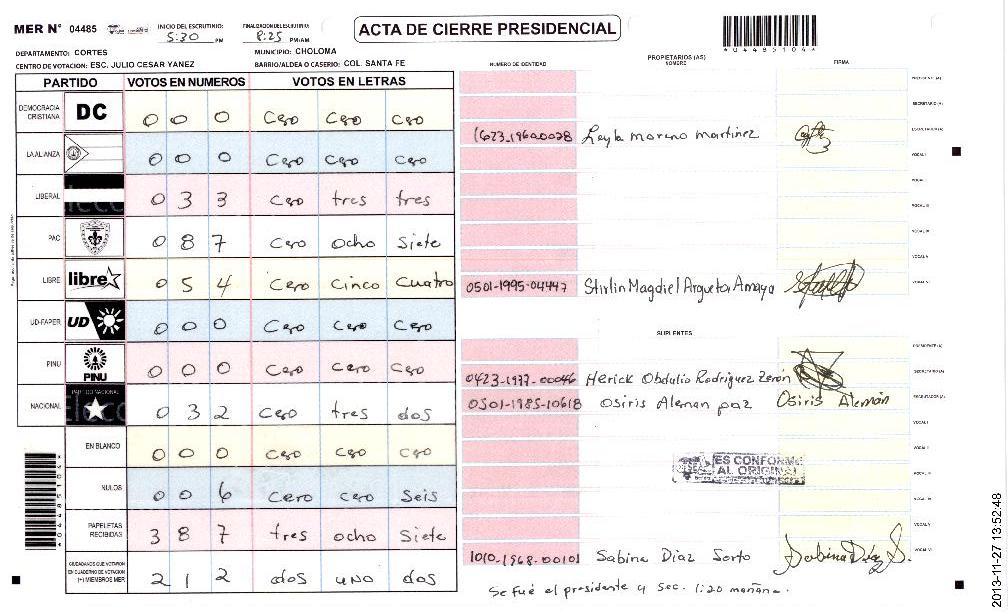 MER N° 04485
INICIO DEL ESCRUTINIO: 5:30 PM
FINALIZACION DEL ESCRUTINIO: 8:25 PM/AM
ACTA DE CIERRE PRESIDENCIAL
*04485104*
DEPARTAMENTO: CORTES
MUNICIPIO: CHOLOMA
CENTRO DE VOTACION: ESC. JULIO CESAR YANEZ
BARRIO/ALDEA O CASERIO: COL. SANTA FE
PARTIDO VOTOS EN NUMEROS VOTOS EN LETRAS
DEMOCRACIA CRISTIANA DC 0 0 0 Cero Cero Cero
LA ALIANZA 0 0 0 Cero Cero Cero
LIBERAL 0 3 3 Cero tres tres
PAC 0 8 7 Cero ocho Siete
LIBRE libre 0 5 4 Cero Cinco Cuatro
UD-FAPER UD 0 0 0 Cero Cero Cero
PINU PINU 0 0 0 Cero Cero Cero
NACIONAL PARTIDO NACIONAL 0 3 2 Cero tres dos
EN BLANCO 0 0 0 Cero Cero Cero
NULOS 0 0 6 Cero Cero Seis
PAPELETAS RECIBIDAS 3 8 7 tres ocho Siete
CIUDADANOS QUE VOTARON EN CUADERNO DE VOTACION (+) MIEMBROS MER 2 1 2 dos uno dos
PROPIETARIOS (AS)
NUMERO DE IDENTIDAD NOMBRE FIRMA
PRESIDENTE (A)
SECRETARIO (A)
Leyla moreno martinez ESCRUTADOR (A)
VOCAL I
VOCAL II
VOCAL III
VOCAL IV
VOCAL V
0501-1995-04447 Stirlin Magdiel Argueta Amaya VOCAL VI
SUPLENTES
PRESIDENTE (A)
0423-1977-00046 Herick Obdulio Rodriguez Zerón SECRETARIO (A)
0501-1985-10618 Osiris Aleman paz Osiris Alemán ESCRUTADOR (A)
VOCAL I
VOCAL II
VOCAL III
ES CONFORME AL ORIGINAL
VOCAL IV
VOCAL V
1010-1968-00101 Sabina Diaz Sorto Sabina Díaz S. VOCAL VI
Se fué el presidente y sec. 1:20 mañana.
2013-11-27 13:52:48